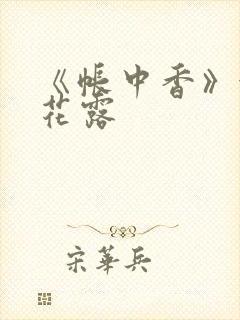 《帳中香》
花露
宋華兵